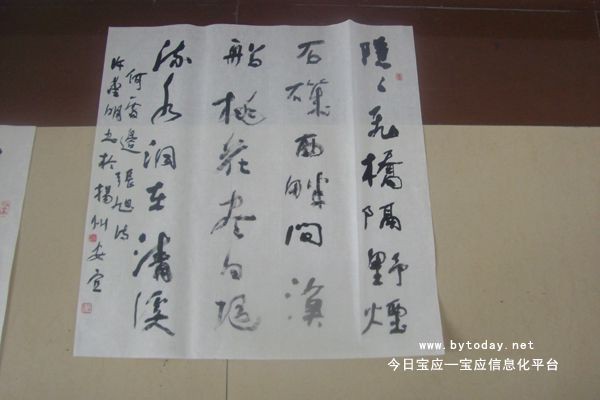 隐〻飛橋隔野煙
石磯西畔問漁
船桃花尽日随
流水洞在清溪
何處邊張旭詩
许明书於揚州安宜
www.bytoday.net
今日宝应—宝应信息化平台